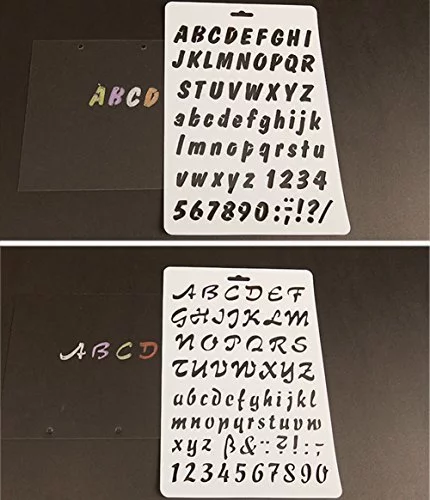 ABCD
ABCDEFGHI
JKLMNOPQR
STUVWXYZ
abcdefghijk
lmnopqrstu
vwxyz 1234
567890:;!?/
ABCD
ABCDEF
GHIJKLM
NOPQRS
TUVWXYZ
abcdefghijkl
mnopqrstuvw
xyz ß&:?!:;-
1234567890